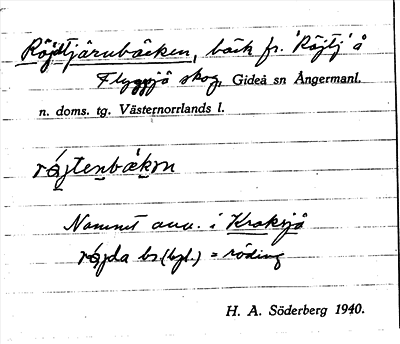 Röjdtjärnbäcken, bäck fr. 'Röjtj' å
Flyggsjö skog, Gideå sn Ångermanl.
n. doms. tg. Västernorrlands l.
Namnet anv. i Kraksjö
röjda bs (bjl.) = röding
H. A. Söderberg 1940.